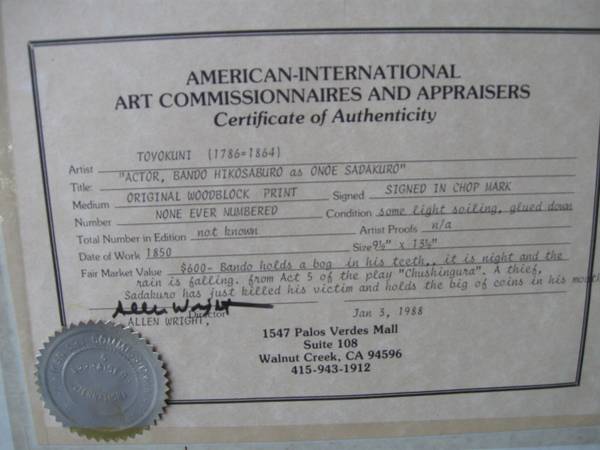 AMERICAN-INTERNATIONAL
ART COMMISSIONNAIRES AND APPRAISERS
Certificate of Authenticity
Artist TOYOKUNI (1786=1864)
Title: "ACTOR, BANDO HIKOSABURO as ONOE SADAKURO"
Medium ORIGINAL WOODBLOCK PRINT Signed SIGNED IN CHOP MARK
Number NONE EVER NUMBERED Condition some light soiling, glued down
Total Number in Edition not known Artist Proofs n/a
Date of Work 1850 Size 9½" x 13½"
Fair Market Value $600- Bando holds a bog in his teeth., it is night and the
rain is falling. from Act 5 of the play "Chushingura". A thief,
Sadakuro has just killed his victim and holds the big of coins in his mouth
Allen Wright
Director
ALLEN WRIGHT, Jan 3, 1988
1547 Palos Verdes Mall
Suite 108
Walnut Creek, CA 94596
415-943-1912